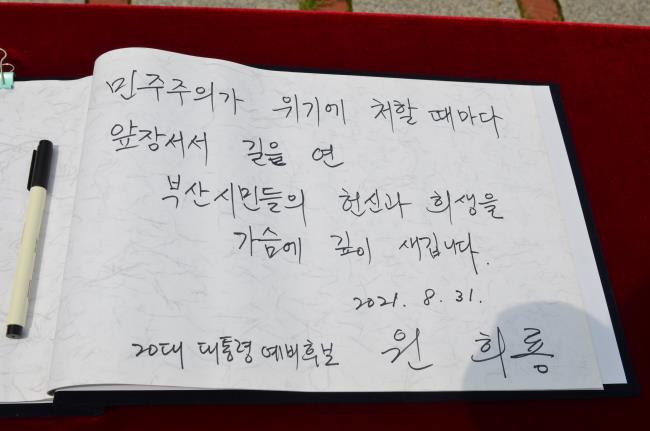 민주주의가 위기에 처할 때마다
앞장서서 길을 연
부산시민들의 헌신과 희생을
가슴에 깊이 새깁니다.
2021. 8. 31.
20대 대통령 예비후보 원희룡